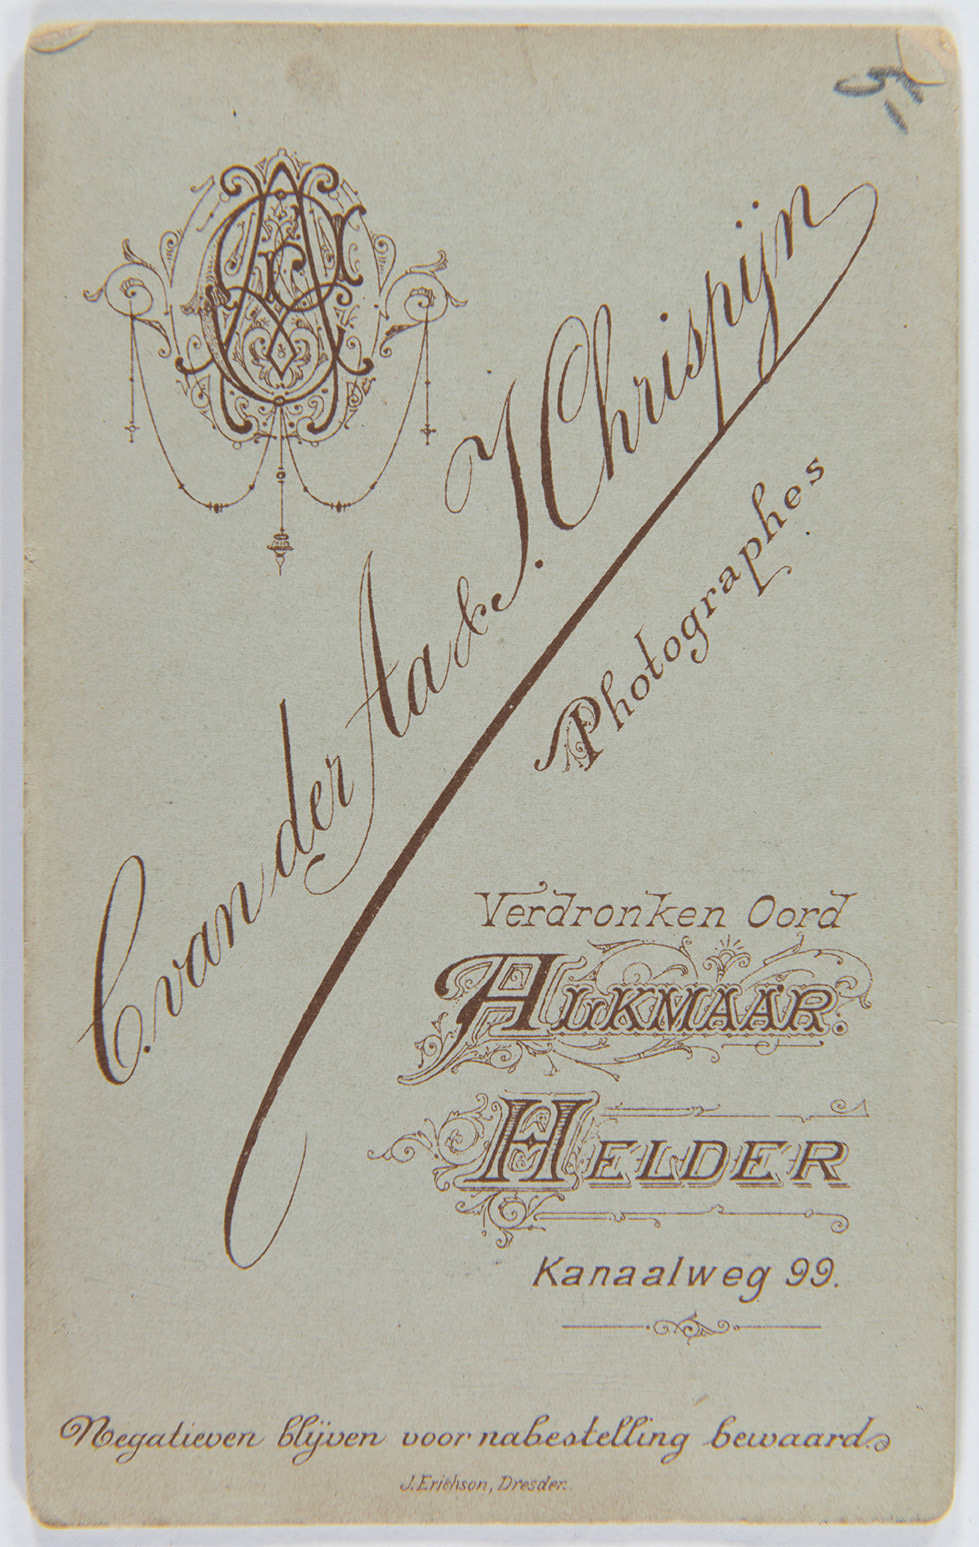 C. van der Aa & J. Chrispijn
Photographes
Verdronken Oord
ALKMAAR.
HELDER
Kanaalweg 99.
Negatieven blijven voor nabestelling bewaard.
J. Erichson, Dresden.